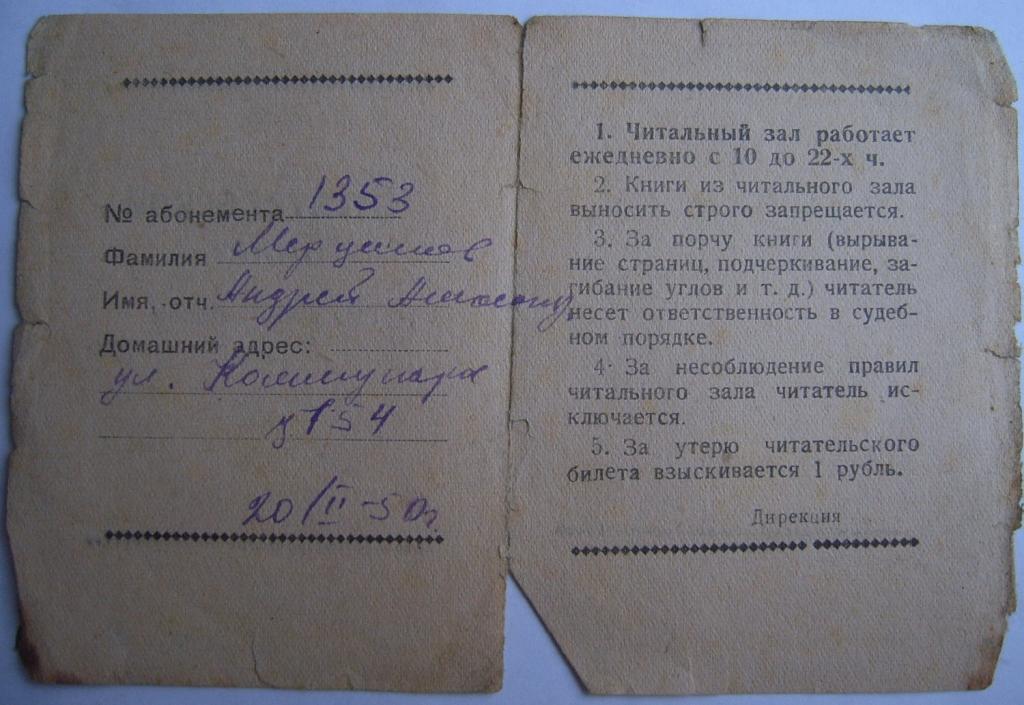 № абонемента 1353
Фамилия
Имя, отч. Андрей
Домашний адрес:
ул. Коммунара
154
20/II-50г.
1. Читальный зал работает
ежедневно с 10 до 22-х ч.
2. Книги из читального зала
выносить строго запрещается.
3. За порчу книги (вырыва-
ние страниц, подчеркивание, за-
гибание углов и т. д.) читатель
несет ответственность в судеб-
ном порядке.
4. За несоблюдение правил
читального зала читатель ис-
ключается.
5. За утерю читательского
билета взыскивается 1 рубль.
Дирекция